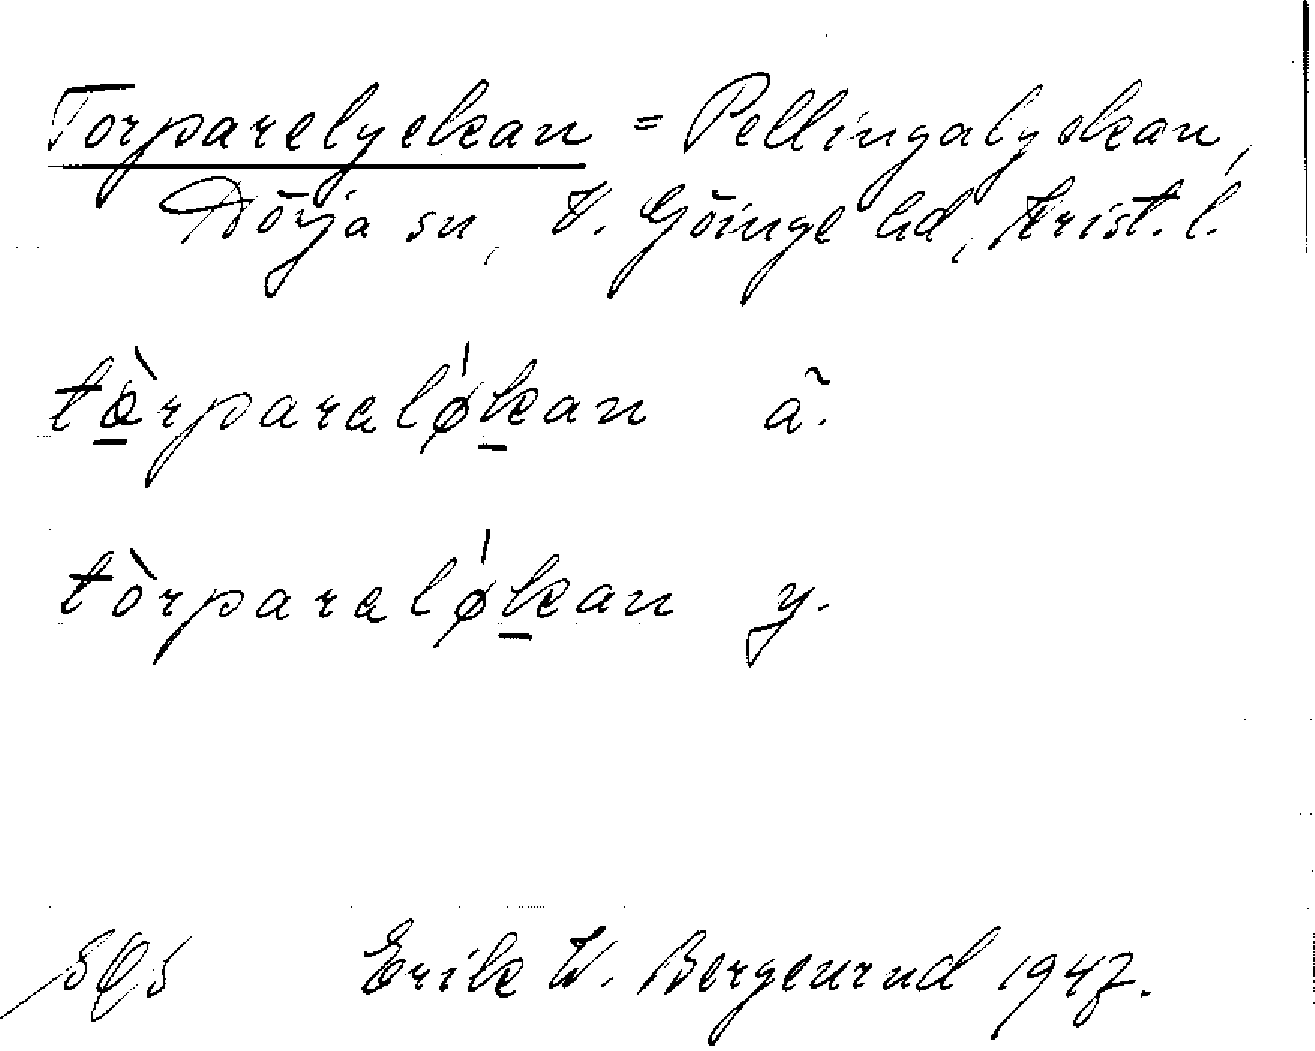 Torparelyckan = Pellingalyckan,
Dörja sn, V. Göinge hd, Krist. l.
tòrparalǿkan ä.
tòrparalǿkan y.
Erik W. Bergenrud 1947.